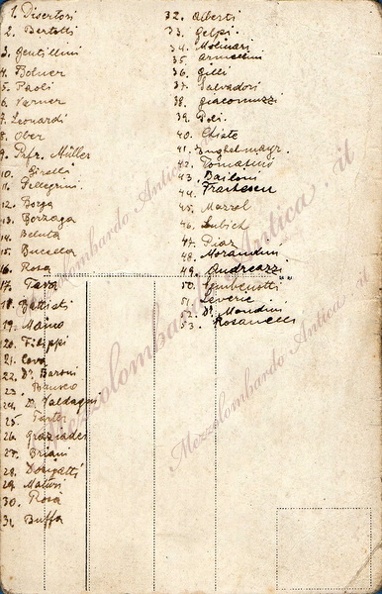 1. Disertori
2. Bertolli
3. Gentillini
4. Bolner
5. Paoli
6. Varner
7. Leonardi
8. Ober
9. Prfr. Müller
10. Girelli
11. Pellegrini
12. Borga
13. Borzaga
14. Beluta
15. Bucella
16. Rosa
17. Tava
18. Battisti
19. Maino
20. Filippi
21. Cova
22. Dr. Baroni
23.
24. Dr. Valdagni
25.
26. Graziadei
27. Briani
28. Dorigatti
29. Maturi
30. Rosà
31. Buffa
32. Alberti
33. Gelpi
34. Molinari
35. Armellini
36. Gilli
37. Salvadori
38. Giacomuzzi
39.
40. Chiste
41. Bughelmayr.
42. Tomasini
43. Dailoni
44.
45. Mazzel
46.
47. Diaz
48. Morandini
49. Andreazzi
50. Gembenotti
51. Leverie
52. Dr. Mondini
53. Rosanelli
Mezzolombardo Antica . it
Mezzolombardo Antica . it